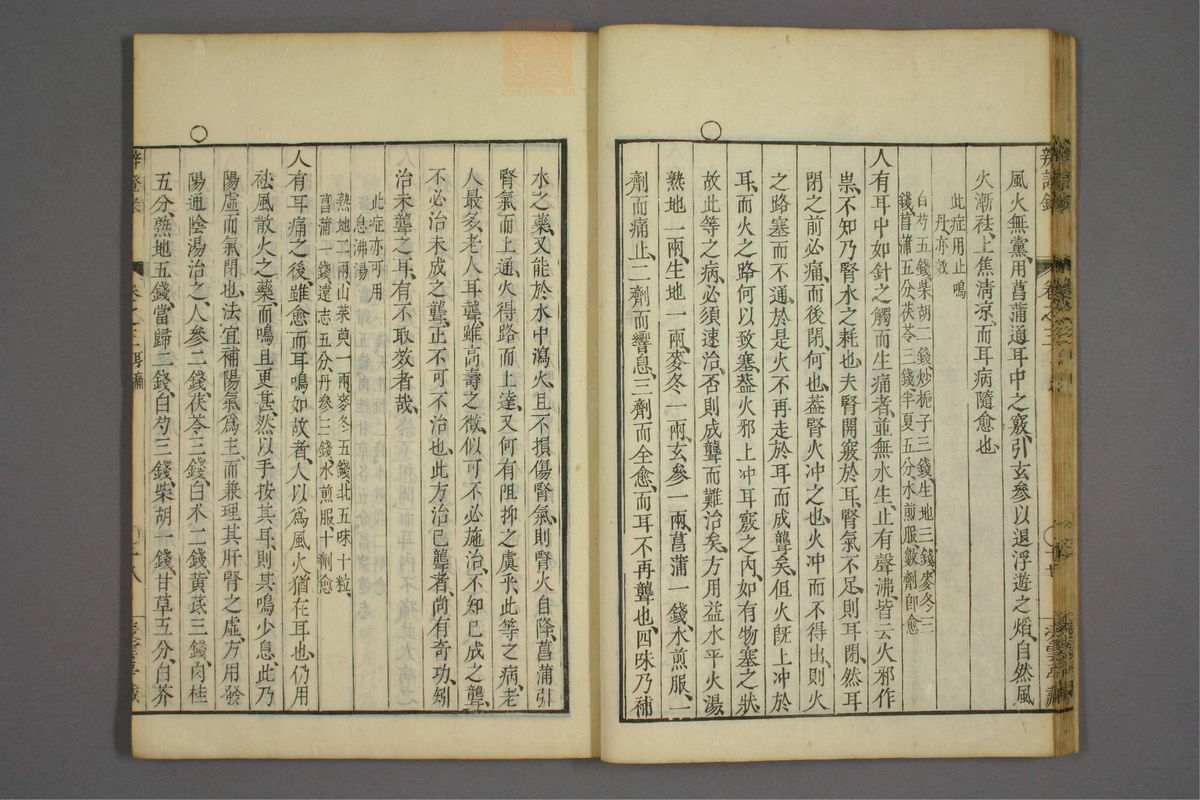 風火無黨、用菖蒲通耳中之竅、引玄參以退浮遊之焰、自然風
火漸祛、上焦清涼、而耳病隨愈也、
此症用止鳴
丹亦效
白芍五錢柴胡二錢炒梔子三錢生地三錢麥冬三
錢菖蒲五分茯苓三錢半夏五分、水煎服、數劑卽愈
人有耳中如針之觸而生痛者、並無水生、止有聲沸、皆云火邪作
祟、不知乃腎水之耗也、夫腎開竅於耳、腎氣不足、則耳閉、然耳
閉之前必痛、而後閉、何也、葢腎火冲之也、火冲而不得出、則火
之路塞而不通、於是火不再走於耳而成聾矣、但火既上冲於
耳、而火之路何以致塞、葢火邪上冲耳竅之內、如有物塞之狀、
故此等之病、必須速治、否則成聾而難治矣、方用益水平火湯
熟地一兩、生地一兩、麥冬一兩、玄參一兩、菖蒲一錢、水煎服、一
劑而痛止、二劑而響息、三劑而全愈、而耳不再聾也、四味乃補
水之藥、又能於水中瀉火、且不損傷腎氣、則腎火自降、菖蒲引
腎氣而上通、火得路而上達、又何有阻抑之虞乎、此等之病、老
人最多、老人耳聾、雖高壽之徵、似可不必施治、不知已成之聾、
不必治、未成之聾、正不可不治也、此方治已聾者、尚有奇功、矧
治未聾之耳、有不取效者哉、
此症亦可用
息沸湯
熟地二兩山茱萸一兩麥冬五錢北五味十粒、
菖蒲一錢遠志五分、丹參三錢、水煎服、十劑愈
人有耳痛之後、雖愈而耳鳴如故者、人以爲風火猶在耳也、仍用
祛風散火之藥、而鳴且更甚、然以手按其耳、則其鳴少息、此乃
陽虛而氣閉也、法宜補陽氣爲主、而兼理其肝腎之虛、方用發
陽通陰湯治之、人參二錢、茯苓三錢、白朮二錢、黃芪三錢、肉桂
五分、熟地五錢、當歸二錢、白芍三錢、柴胡一錢、甘草五分、白芥